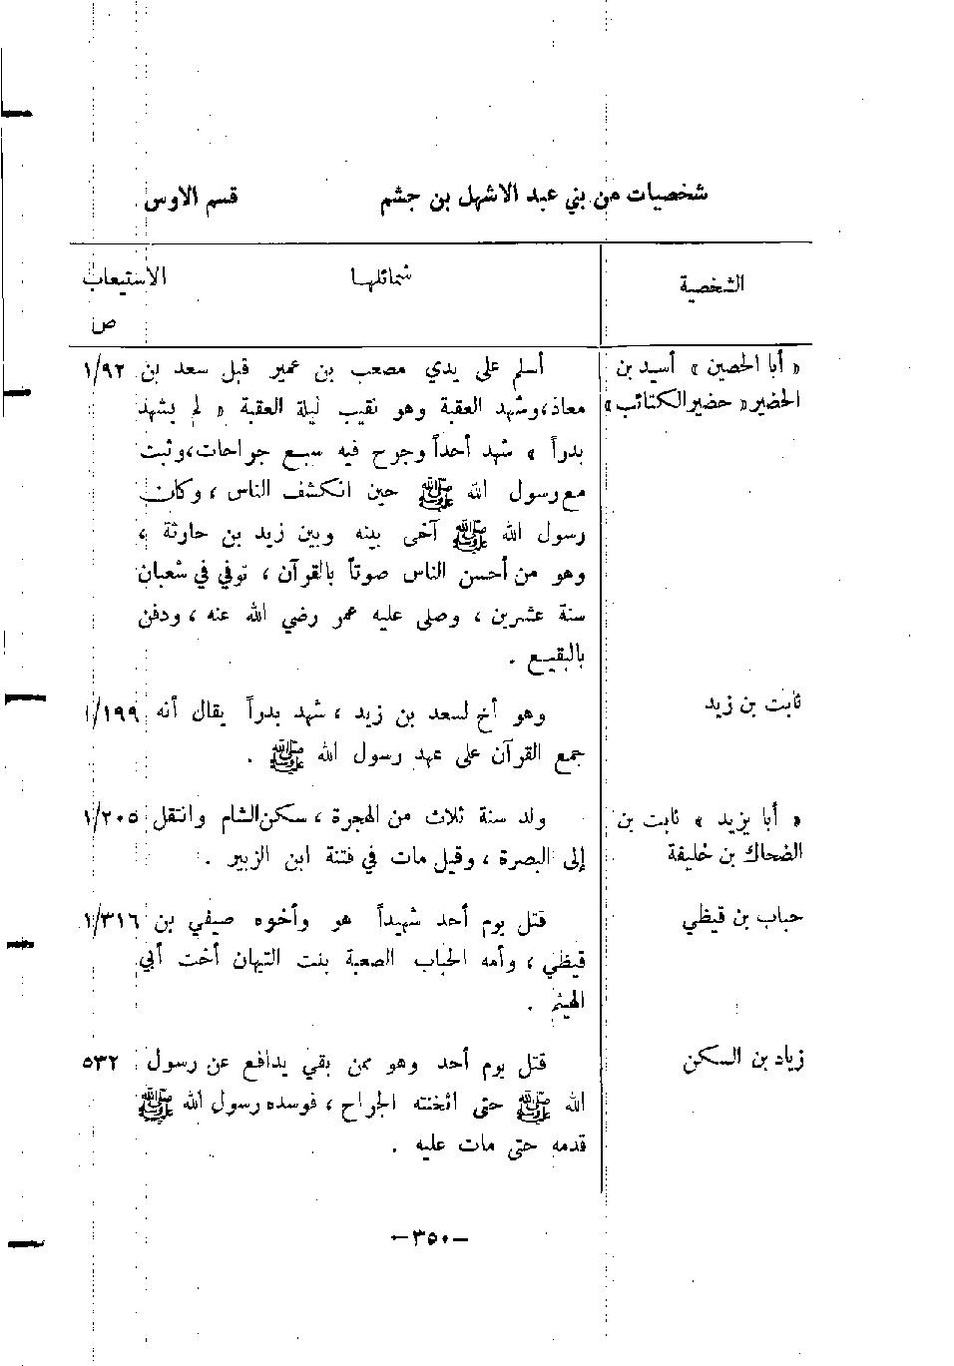 شخصيات من بني عبد الاشهل بن جشم قسم الاوس
الشخصية شمائلها الاستيعاب
ص
« أبا الحصين » أسيد بن أسلم على يدي مصعب بن عمير قبل سعد بن ١/٩٢
الحضير « حضير الكتائب » معاذ ، وشهد العقبة وهو نقيب ليلة العقبة « لم يشهد
بدراً » شهد أحداً وجرح فيه سبع جراحات ، وثبت
مع رسول الله ﷺ حين انكشف الناس ، وكان
رسول الله ﷺ آخى بينه وبين زيد بن حارثة ،
وهو من أحسن الناس صوتاً بالقرآن ، توفي في شعبان
سنة عشرين ، وصلى عليه عمر رضي الله عنه ، ودفن
بالبقيع .
ثابت بن زيد وهو أخ لسعد بن زيد ، شهد بدراً يقال أنه ١/١٩٩
جمع القرآن على عهد رسول الله ﷺ .
« أبا يزيد » ثابت بن ولد سنة ثلاث من الهجرة ، سكن الشام وانتقل ١/٢٠٥
الضحاك بن خليفة إلى البصرة ، وقيل مات في فتنة ابن الزبير .
حباب بن قيظي قتل يوم أحد شهيداً هو وأخوه صيفي بن ١/٣١٦
قيظي ، وأمه الحباب الصعبة بنت التيهان أخت أبي
الهيثم .
زياد بن السكن قتل يوم أحد وهو ممن بقي يدافع عن رسول ٥٣٢
الله ﷺ حتى اثخنته الجراح ، فوسده رسول الله ﷺ
قدمه حتى مات عليه .
-٣٥٠-